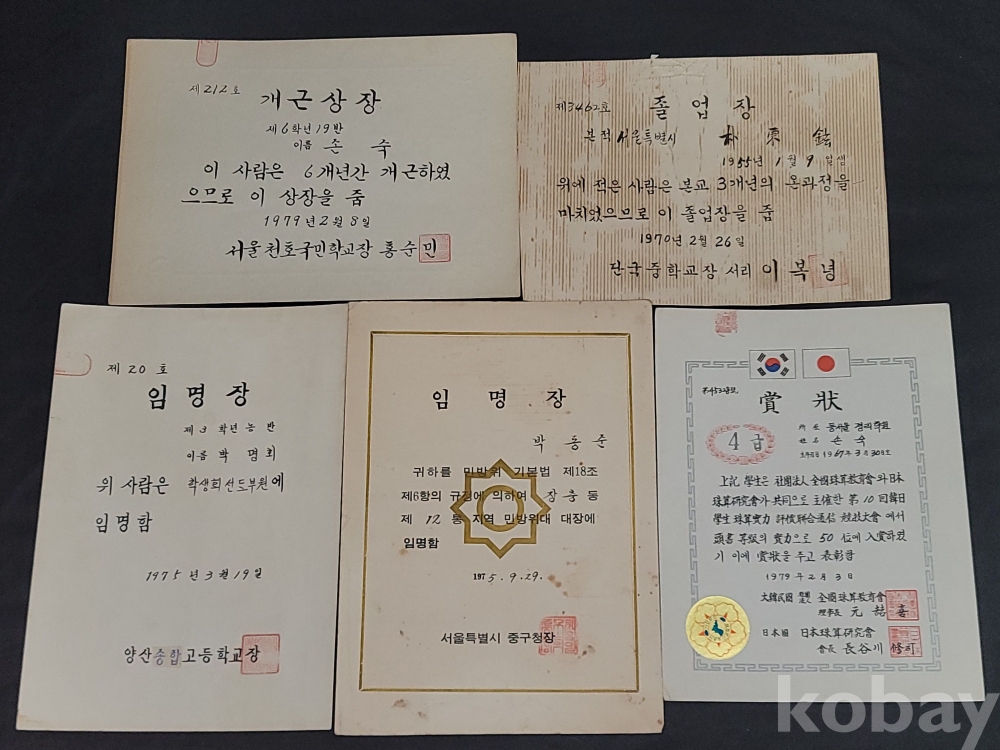 제212호
개근상장
제6학년19반
이름 손 숙
이 사람은 6개년간 개근하였
으므로 이 상장을 줌
1979년2월8일
서울천호국민학교장 홍순민
제3462호
졸 업 장
본적 서울특별시 朴東鉉
1955년 1월 9일생
위에 적은 사람은 본교 3개년의 온과정을
마치었으므로 이 졸업장을 줌
1970년 2월 26일
단국중학교장 서리 이복녕
제 20 호
임명장
제3학년농반
이름 박명회
위 사람은 학생회선도부원에
임명함
1975년3월19일
양산종합고등학교장
임 명 장
박 동 준
귀하를 민방위 기본법 제18조
제6항의 규정에 의하여 장충동
제 12 통 지역 민방위대 대장에
임명함
1975.9.29.
서울특별시 중구청장
賞 狀
4급
姓名 손 숙
生年月日 1967年3月30日
上記 學生은 社團法人 全國珠算教育會와 日本
珠算研究會가 共同으로 主催한 第10回 韓日
學生珠算實力 評價聯合通信 競技大會에서
頭書 等級의 實力으로 50 位에 入賞하였
기 이에 賞狀을 주고 表彰함
1979年2月3日
大韓民國 社團法人 全國珠算教育會
理事長 元喆喜
日本國 日本珠算研究會
會長 長谷川修司
kobay